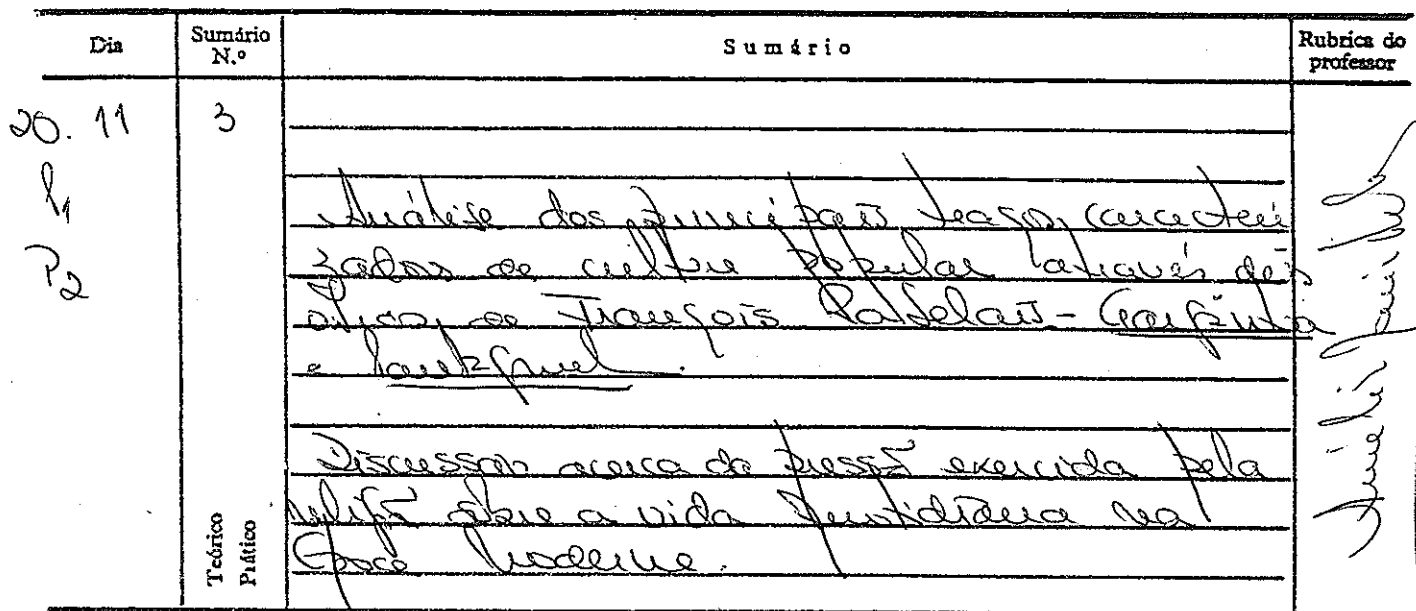 Dia
Sumário N.º
Sumário
Rubrica do professor
20. 11
3
P1
P2
Análise dos principais traços caracteri
zadores da cultura popular através das
obras de François Rabelais - Gargântua
e Pantagruel.
Discussão acerca da pressão exercida pela
religião sobre a vida quotidiana na
Época Moderna.
Teórico
Prático